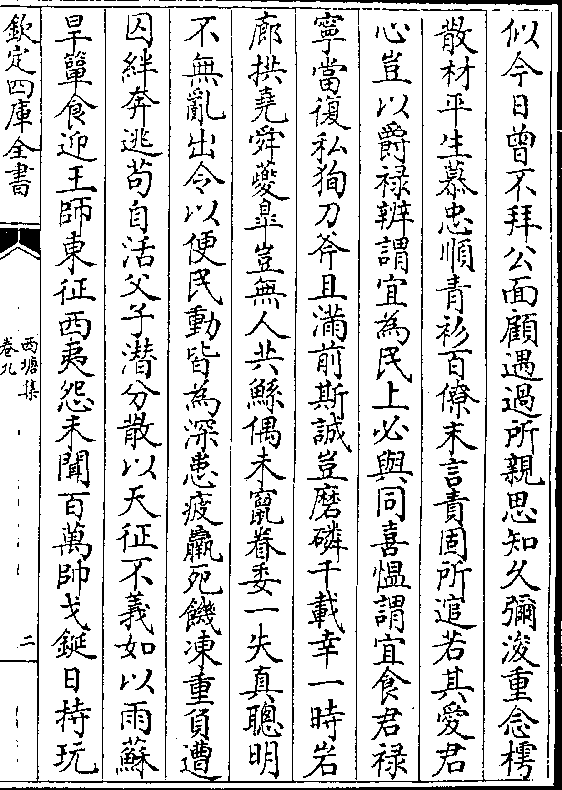 似今日曾不拜公面顧遇過所親思知久彌浚重念樗
散材平生慕忠順青衫百僚末言責固所逭若其愛君
心豈以爵禄辨謂宜為民上必與同喜愠謂宜食君禄
寧當復私狥刀斧且滿前斯誠豈磨磷千載幸一時岩
廊拱堯舜夔臯豈無人共鯀偶未竄眷委一失真聰明
不無亂出令以便民動皆為深患疲羸死饑凍重負遭
囚絆奔逃苟自活父子潛分散以天征不義如以雨蘇
旱簞食迎王師東征西夷怨未聞百萬帥戈鋋日持玩
欽定四庫全書
西塘集
卷九
二